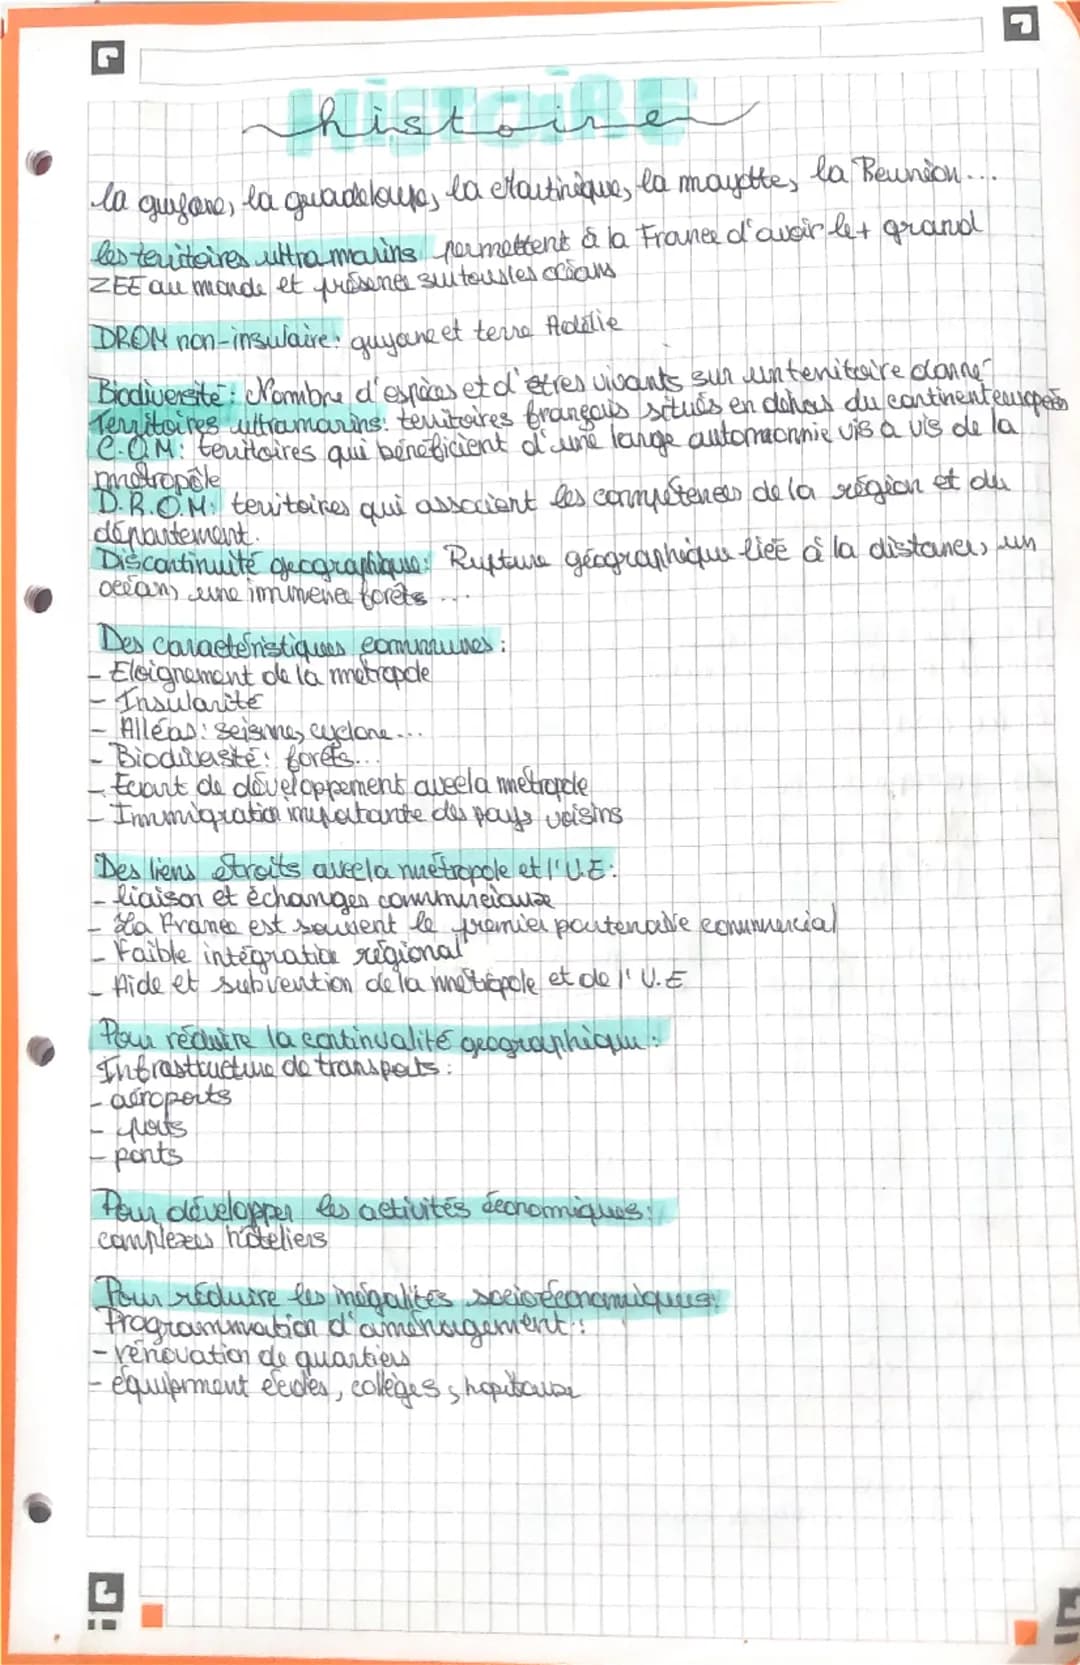 HISTOIRE
histoire
la guyane, la guadeloupe, la Martinique, la mayotte, la Reunion...
les territoires ultra marins permettent à la France d'avoir le + grand
ZEE au monde et présence sur tous les océans
DROM non-insulaire: guyane et terre Adélie
Biodiversité: Nombre d'espèces et d'êtres vivants sur un territoire donné
Territoires ultramarins: territoires français situés en dehors du continent européen
C.O.M: territoires qui bénéficient d'une large automonnie vis a vis de la
métropôle
D.R.O.M: territoires qui associent les compétences de la région et du
département.
Discontinuité geographique: Rupture géographique liée à la distance, un
océan, une immence forêts ...
Des caractéristiques communes:
- Eloignement de la metropole
- Insularité
- Alléas: seisme, cyclone...
- Biodiversté: forêts...
- Ecart de développement avec la métropole
- Immigration importante des pays voisins
Des liens étroits avec la métropole et l'U.E:
- liaison et échanges commerciaux
- La France est souvent le premier partenaire commercial
- Faible intégration régional
- Aide et subvention de la métropole et de l'U.E
Pour réduire la continualité geographique:
Infrastructure de transports:
- aéroports
- ports
- ponts
Pour développer les activités économiques:
complexes hôteliers
Pour réduire les inégalités socio-économiques:
Programmation d'aménagement:
- rénovation de quartiers
- équipment écoles, collèges, hopitaux